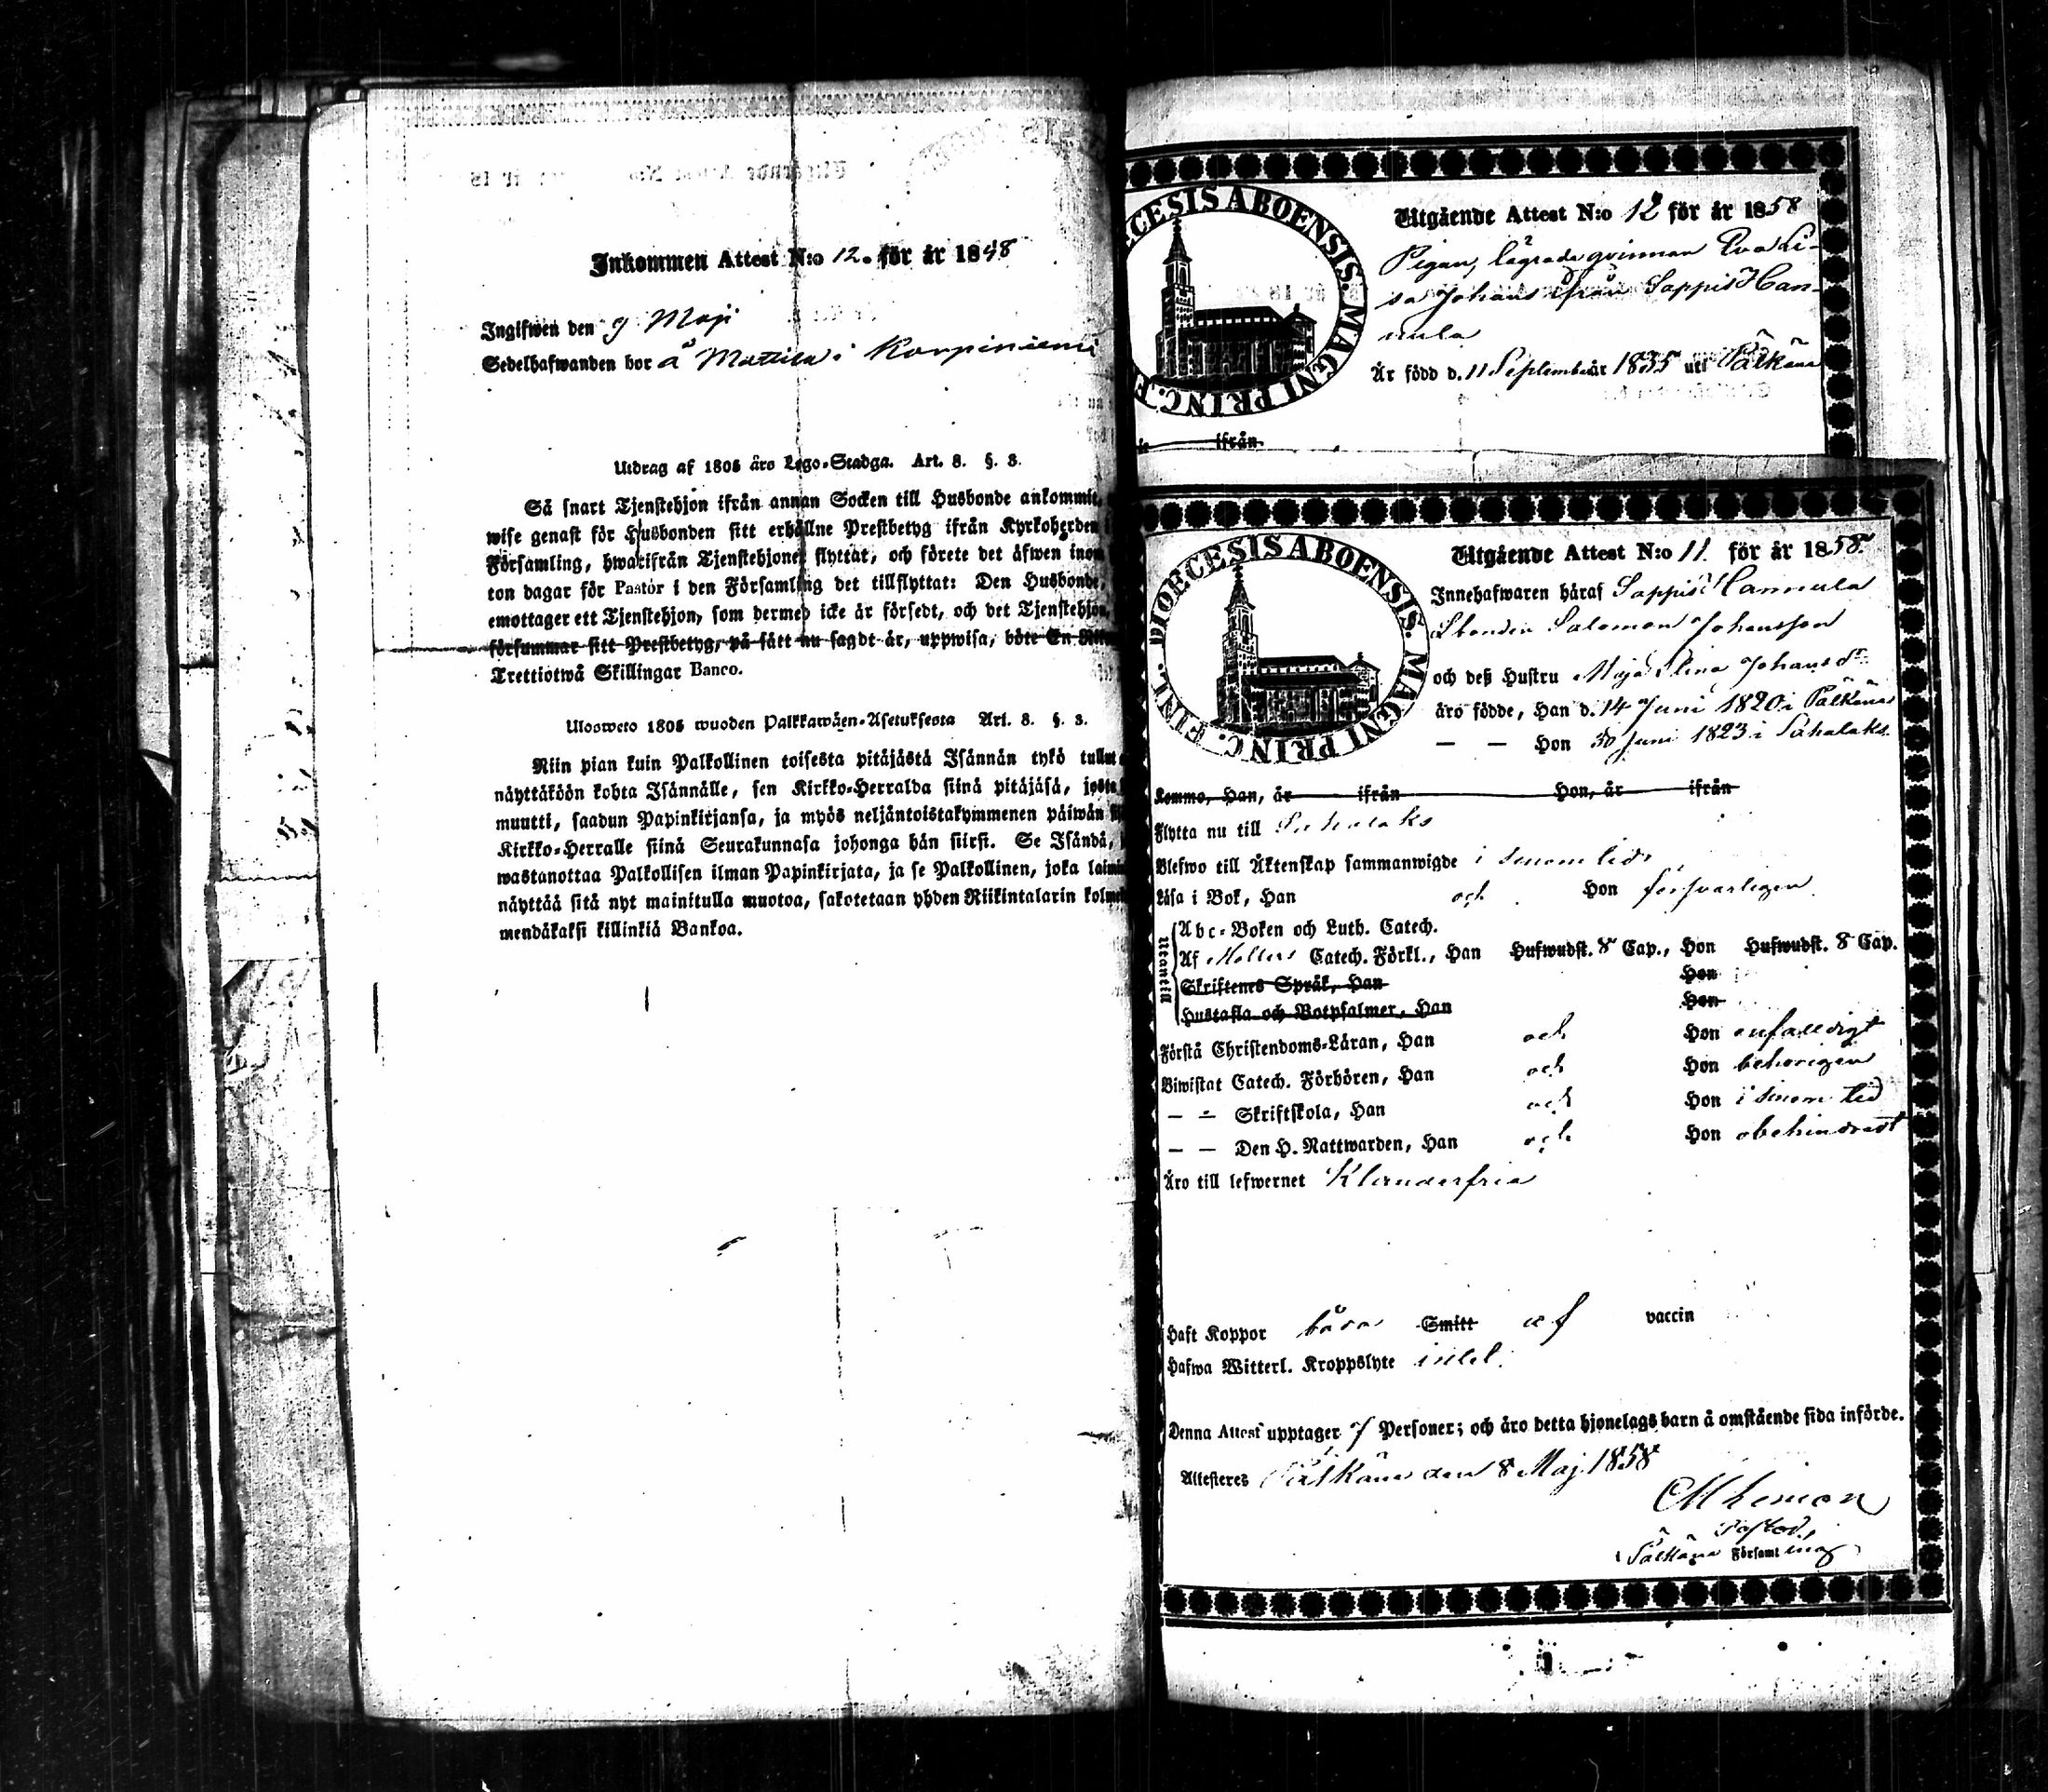 Inkommen Attest N:o 12. för år 1848
Ingifwen den 9 Maji
Sedelhafwanden bor å Mattila i Korpiniemi
Utdrag af 1805 års Lego-Stadga. Art. 8. §. 3.
Så snart Tjenstehjon ifrån annan Socken till Husbonde ankommit,
wise genast för Husbonden sitt erhållne Prestbetyg ifrån Kyrkoherden i
Församling, hwarifrån Tjenstehjonet flyttat, och förete det äfwen inom
ton dagar för Pastor i den Församling det tillflyttat: Den Husbonde,
emottager ett Tjenstehjon, som dermed icke är försedt, och det Tjenstehjon,
försummar sitt Prestbetyg, på sätt nu sagdt är, uppwisa, böte En Riks
Trettiotwå Skillingar Banco.
Ulosweto 1805 wuoden Palkkawäen-Asetuksesta Art. 8. §. 3.
Niin pian kuin Palkollinen toisesta pitäjästä Isännän tykö tullut
näyttäköön kohta Isännälle, sen Kirkko-Herralda siinä pitäjäsä, josta
muutti, saadun Papinkirjansa, ja myös neljäntoistakymmenen päiwän
Kirkko-Herralle siinä Seurakunnasa johonga hän siirsi. Se Isändä,
wastanottaa Palkollisen ilman Papinkirjata, ja se Palkollinen, joka laimin
näyttää sitä nyt mainitulla muotoa, sakotetaan yhden Riikintalarin kolme
mendäkaksi killinkiä Bankoa.
CESIS ABOENSIS. MAGNI PRINC. F
Utgående Attest N:o 12 för år 1858
Pigan, lägrade qvinnan Eva Li-
sa Johans ifrån Sappis Han-
nula
Är född d. 11 September år 1835 uti Pälkäne
ifrån
DIOECESIS ABOENSIS. MAGNI PRINC. FINL.
Utgående Attest N:o 11. för år 1858.
Innehafwaren häraf Sappis Hannula
Salomon Johansson
och deß Hustru Maja Stina Johansdr
äro födde, Han d. 14 Juni 1820 i Pälkäne
— — Hon 30 Juni 1823 i Sahalaks.
Komma, Han, år ifrån Hon, år ifrån
Flytta nu till Sahalaks
Blefwo till Äktenskap sammanwigde i sinom tid
Läsa i Bok, Han och Hon försvarligen
Utantill
Abc-Boken och Luth. Catech.
Af Möllers Catech. Förkl., Han Hufwudst. 8 Cap., Hon Hufwudst. 8 Cap.
Skriftenes Språk, Han Hon
Hustafla och Botpsalmer, Han Hon
Förstå Christendoms-Läran, Han och Hon enfaldigt
Biwistat Catech. Förhören, Han och Hon behörigen
— — Skriftskola, Han och Hon i sinom tid
— — Den H. Nattwarden, Han och Hon obehindradt
Äro till lefwernet Klanderfria
Haft Koppor båda Smitt af vaccin
Hafwa Witterl. Kroppslyte intet.
Denna Attest upptager 7 Personer; och äro detta hjonelags barn å omstående sida införde.
Attesteras Pälkäne den 8 Maj 1858
Pastor,
Pälkäne Församling